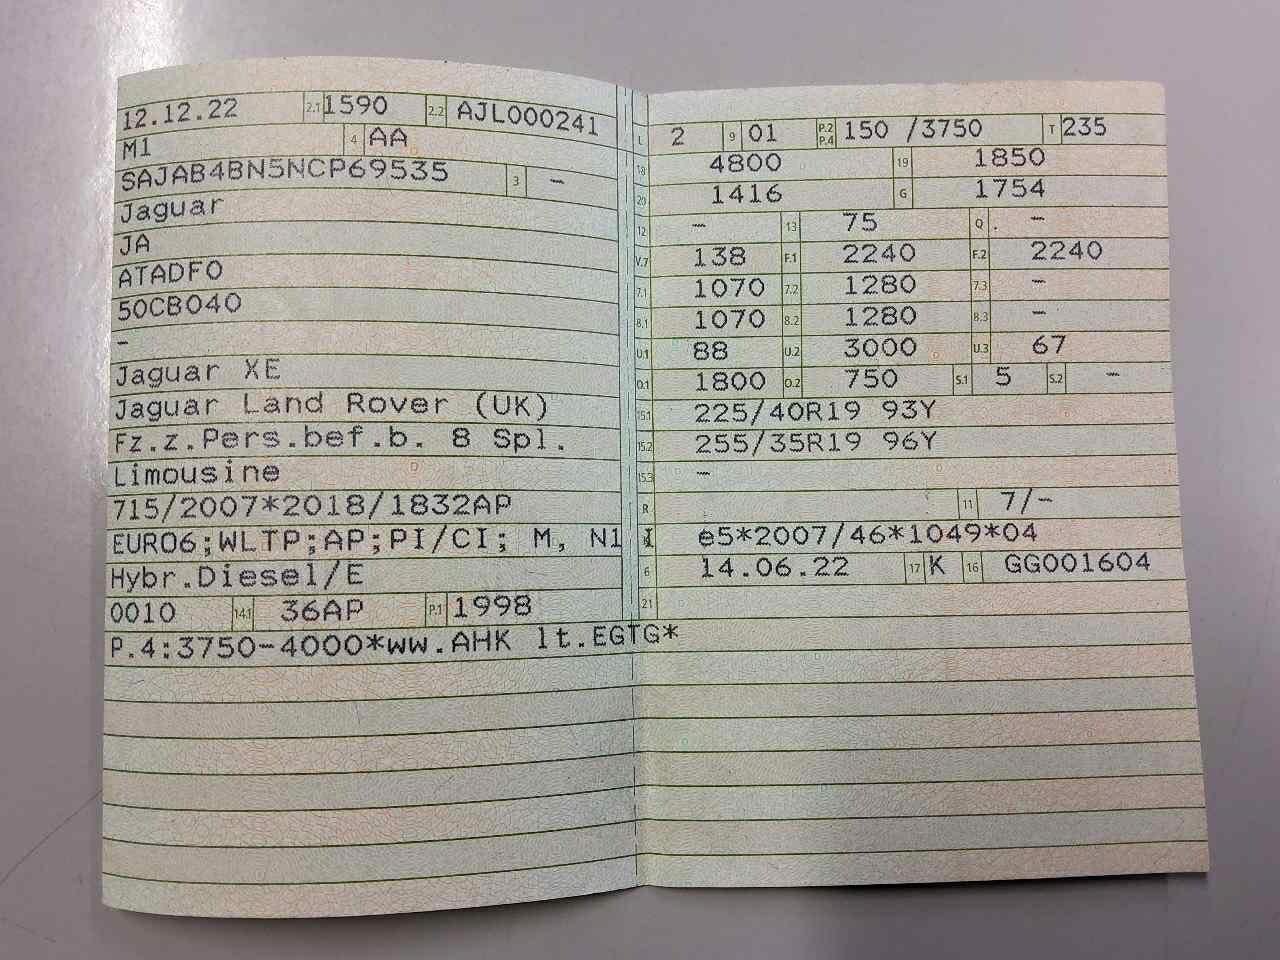 12.12.22 2.1 1590 2.2 AJL000241
M1 4 AA
SAJAB4BN5NCP69535 3 –
Jaguar
JA
ATADFO
50CB040
–
Jaguar XE
Jaguar Land Rover (UK)
Fz.z.Pers.bef.b. 8 Spl.
Limousine
715/2007*2018/1832AP
EURO6;WLTP;AP;PI/CI; M, N1 I
Hybr.Diesel/E
0010 14.1 36AP P.1 1998
P.4:3750-4000*ww.AHK lt.EGTG*
L 2 9 01 P.2 P.4 150 /3750 T 235
18 4800 19 1850
20 1416 G 1754
12 – 13 75 Q . –
V.7 138 F.1 2240 F.2 2240
7.1 1070 7.2 1280 7.3 –
8.1 1070 8.2 1280 8.3 –
U.1 88 U.2 3000 U.3 67
O.1 1800 O.2 750 S.1 5 S.2 –
15.1 225/40R19 93Y
15.2 255/35R19 96Y
15.3 –
R 11 7/-
e5*2007/46*1049*04
6 14.06.22 17 K 16 GG001604
21